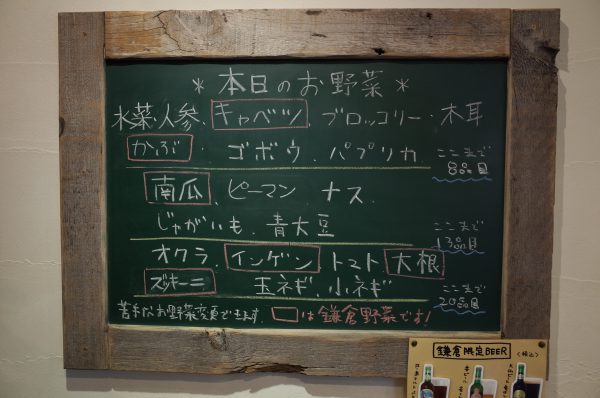 * 本日のお野菜 *
水菜・人参、キャベツ、ブロッコリー・木耳
かぶ、ゴボウ、パプリカ ここまで8品目
南瓜、ピーマン、ナス、
じゃがいも、青大豆 ここまで13品目
オクラ、インゲン、トマト、大根
ズッキーニ、玉ネギ、小ネギ ここまで20品目
苦手なお野菜変更できます。□は鎌倉野菜です!
鎌倉限定BEER 〈税込〉